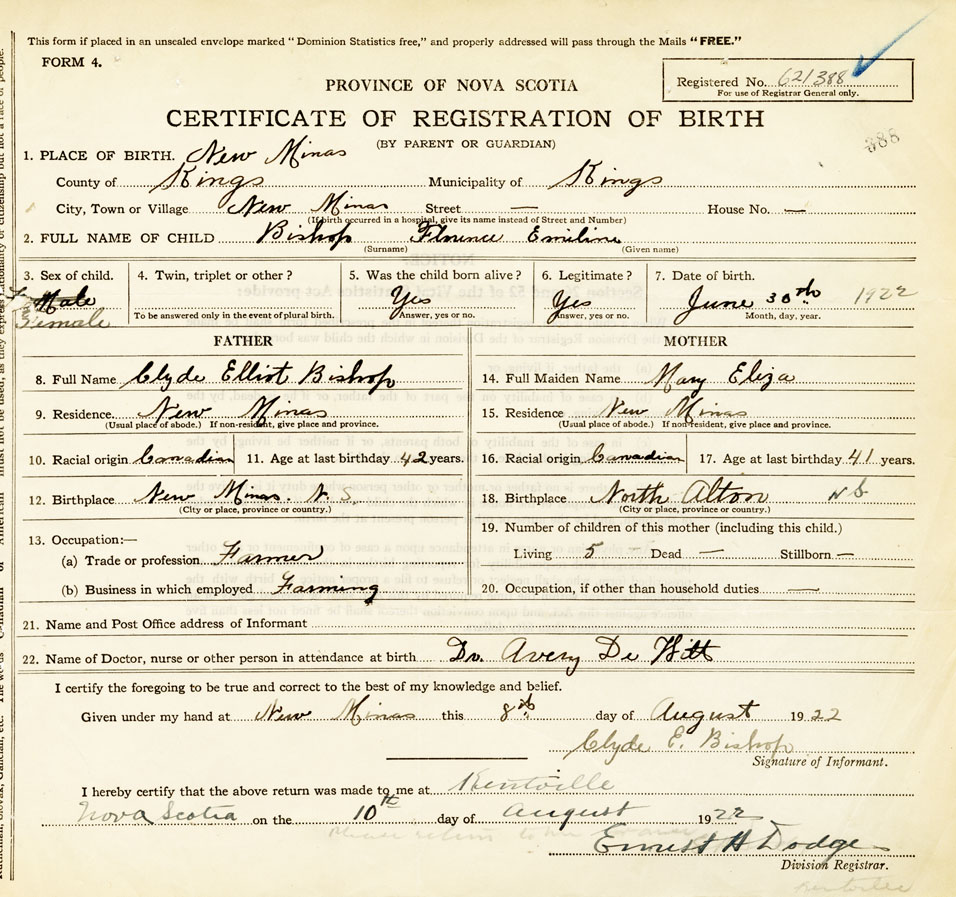 This form if placed in an unsealed envelope marked "Dominion Statistics free," and properly addressed will pass through the Mails "FREE."
FORM 4.
Registered No. 621388
For use of Registrar General only.
PROVINCE OF NOVA SCOTIA
CERTIFICATE OF REGISTRATION OF BIRTH
(BY PARENT OR GUARDIAN)
388
1. PLACE OF BIRTH. New Minas
County of Kings Municipality of Kings
City, Town or Village New Minas Street — House No. —
(If birth occurred in a hospital, give its name instead of Street and Number)
2. FULL NAME OF CHILD Bishop Florence Emiline
(Surname) (Given name)
3. Sex of child. Male Female
4. Twin, triplet or other?
To be answered only in the event of plural birth.
5. Was the child born alive? Yes
Answer, yes or no.
6. Legitimate? Yes
Answer, yes or no.
7. Date of birth. June 30th 1922
Month, day, year.
FATHER
8. Full Name Clyde Elliot Bishop
9. Residence. New Minas
(Usual place of abode.) If non-resident, give place and province.
10. Racial origin Canadian 11. Age at last birthday 42 years.
12. Birthplace New Minas. N. S.
(City or place, province or country.)
13. Occupation:—
(a) Trade or profession Farmer
(b) Business in which employed Farming
MOTHER
14. Full Maiden Name Mary Eliza
15. Residence New Minas
(Usual place of abode.) If non-resident, give place and province.
16. Racial origin Canadian 17. Age at last birthday 41 years.
18. Birthplace North Alton
(City or place, province or country.)
19. Number of children of this mother (including this child.)
Living 5 Dead — Stillborn —
20. Occupation, if other than household duties —
21. Name and Post Office address of Informant
22. Name of Doctor, nurse or other person in attendance at birth Dr. Avery De Witt
I certify the foregoing to be true and correct to the best of my knowledge and belief.
Given under my hand at New Minas this 8th day of August 1922
Clyde E. Bishop
Signature of Informant.
I hereby certify that the above return was made to me at Kentville
Nova Scotia on the 10th day of August 1922
Ernest H Dodge
Division Registrar.
Kentville